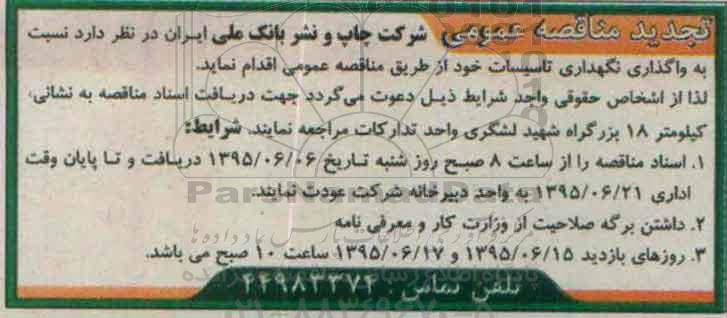 تجدید مناقصه عمومی شرکت چاپ و نشر بانک ملی ایران در نظر دارد نسبت
به واگذاری نگهداری تاسیسات خود از طریق مناقصه عمومی اقدام نماید.
لذا از اشخاص حقوقی واجد شرایط ذیل دعوت می‌گردد جهت دریافت اسناد مناقصه به نشانی،
کیلومتر ۱۸ بزرگراه شهید لشگری واحد تدارکات مراجعه نمایند. شرایط:
۱. اسناد مناقصه را از ساعت ۸ صبح روز شنبه تاریخ ۱۳۹۵/۰۶/۰۶ دریافت و تا پایان وقت
اداری ۱۳۹۵/۰۶/۲۱ به واحد دبیرخانه شرکت عودت نمایند.
ParsNamadData
۲. داشتن برگه صلاحیت از وزارت کار و معرفی نامه
۳. روزهای بازدید ۱۳۹۵/۰۶/۱۵ و ۱۳۹۵/۰۶/۱۷ ساعت ۱۰ صبح می باشد.
تلفن تماس: ۴۴۹۸۳۳۷۴